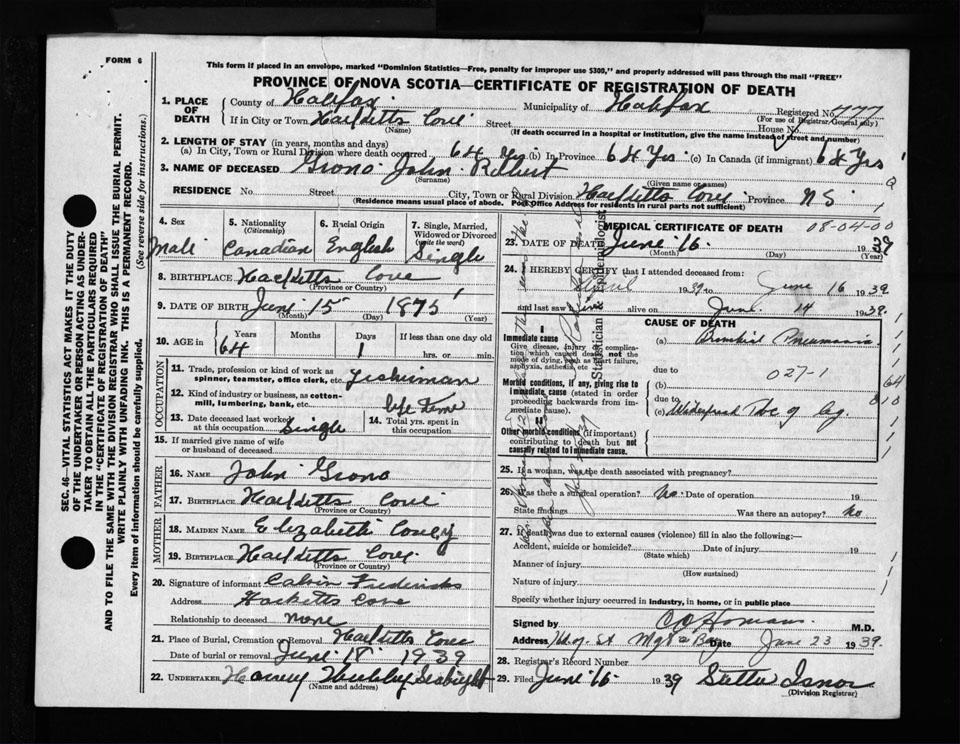 FORM 6
This form if placed in an envelope, marked "Dominion Statistics—Free, penalty for improper use $300," and properly addressed will pass through the mail "FREE"
PROVINCE OF NOVA SCOTIA—CERTIFICATE OF REGISTRATION OF DEATH
SEC. 46—VITAL STATISTICS ACT MAKES IT THE DUTY
OF THE UNDERTAKER OR PERSON ACTING AS UNDER-
TAKER TO OBTAIN ALL THE PARTICULARS REQUIRED
IN THE "CERTIFICATE OF REGISTRATION OF DEATH"
AND TO FILE THE SAME WITH THE DIVISION REGISTRAR WHO SHALL ISSUE THE BURIAL PERMIT.
WRITE PLAINLY WITH UNFADING INK. THIS IS A PERMANENT RECORD.
Every item of information should be carefully supplied. (See reverse side for instructions.)
1. PLACE OF DEATH County of Halifax Municipality of Halifax Registered No. 777
(For use of Registrar General only)
If in City or Town Hacketts Cove Street House No.
(Name) (If death occurred in a hospital or institution, give the name instead of street and number)
2. LENGTH OF STAY (in years, months and days)
(a) In City, Town or Rural Division where death occurred 64 Yrs (b) In Province 64 Yrs. (c) In Canada (if immigrant) 64 Yrs
3. NAME OF DECEASED Grono John Robert
(Surname) (Given name or names)
RESIDENCE No Street City, Town or Rural Division Hacketts Cove Province N S.
(Residence means usual place of abode. Post Office Address for residents in rural parts not sufficient)
4. Sex Male
5. Nationality (Citizenship) Canadian
6. Racial Origin English
7. Single, Married, Widowed or Divorced (write the word) Single
8. BIRTHPLACE Hacketts Cove
(Province or Country)
9. DATE OF BIRTH June 15 1875
(Month) (Day) (Year)
10. AGE in Years Months Days If less than one day old
64 1 hrs. or min.
OCCUPATION
11. Trade, profession or kind of work as
spinner, teamster, office clerk, etc. Fisherman
12. Kind of industry or business, as cotton-
mill, lumbering, bank, etc.
13. Date deceased last worked
at this occupation Single
14. Total yrs. spent in
this occupation life time
15. If married give name of wife
or husband of deceased
FATHER
16. NAME John Grono
17. BIRTHPLACE Hacketts Cove
(Province or Country)
MOTHER
18. MAIDEN NAME Elizabeth Covey
19. BIRTHPLACE Hacketts Cove
(Province or Country)
20. Signature of informant Calvin Fredericks
Address Hacketts Cove
Relationship to deceased none
21. Place of Burial, Cremation or Removal Hacketts Cove
Date of burial or removal June 18 1939
22. UNDERTAKER Harvey Hubley Seabright
(Name and address)
MEDICAL CERTIFICATE OF DEATH
08-04-00
23. DATE OF DEATH June 16. 1939
(Month) (Day) (Year)
24. I HEREBY CERTIFY that I attended deceased from:
April 1939 to June 16 1939
and last saw h alive on June 14 1939.
CAUSE OF DEATH
I
Immediate cause
Give disease, injury or complica-
tion which caused death, not the
mode of dying, such as heart failure,
asphyxia, asthenia, etc.
(a) Bronchial Pneumonia
due to
027-1
Morbid conditions, if any, giving rise to
immediate cause (stated in order
proceeding backwards from im-
mediate cause).
(b)
due to
(c)
II
Other morbid conditions (if important)
contributing to death but not
causally related to immediate cause.
64
810
Statistician & Epidemiologist
25. If a woman, was the death associated with pregnancy?
26. Was there a surgical operation? No. Date of operation 19
State findings Was there an autopsy? No
27. If death was due to external causes (violence) fill in also the following:—
Accident, suicide or homicide? Date of injury 19
(State which)
Manner of injury
(How sustained)
Nature of injury
Specify whether injury occurred in industry, in home, or in public place
Signed by C O Homans M.D.
Address Date June 23 1939.
28. Registrar's Record Number
29. Filed June 16 1939 Isnor
(Division Registrar)